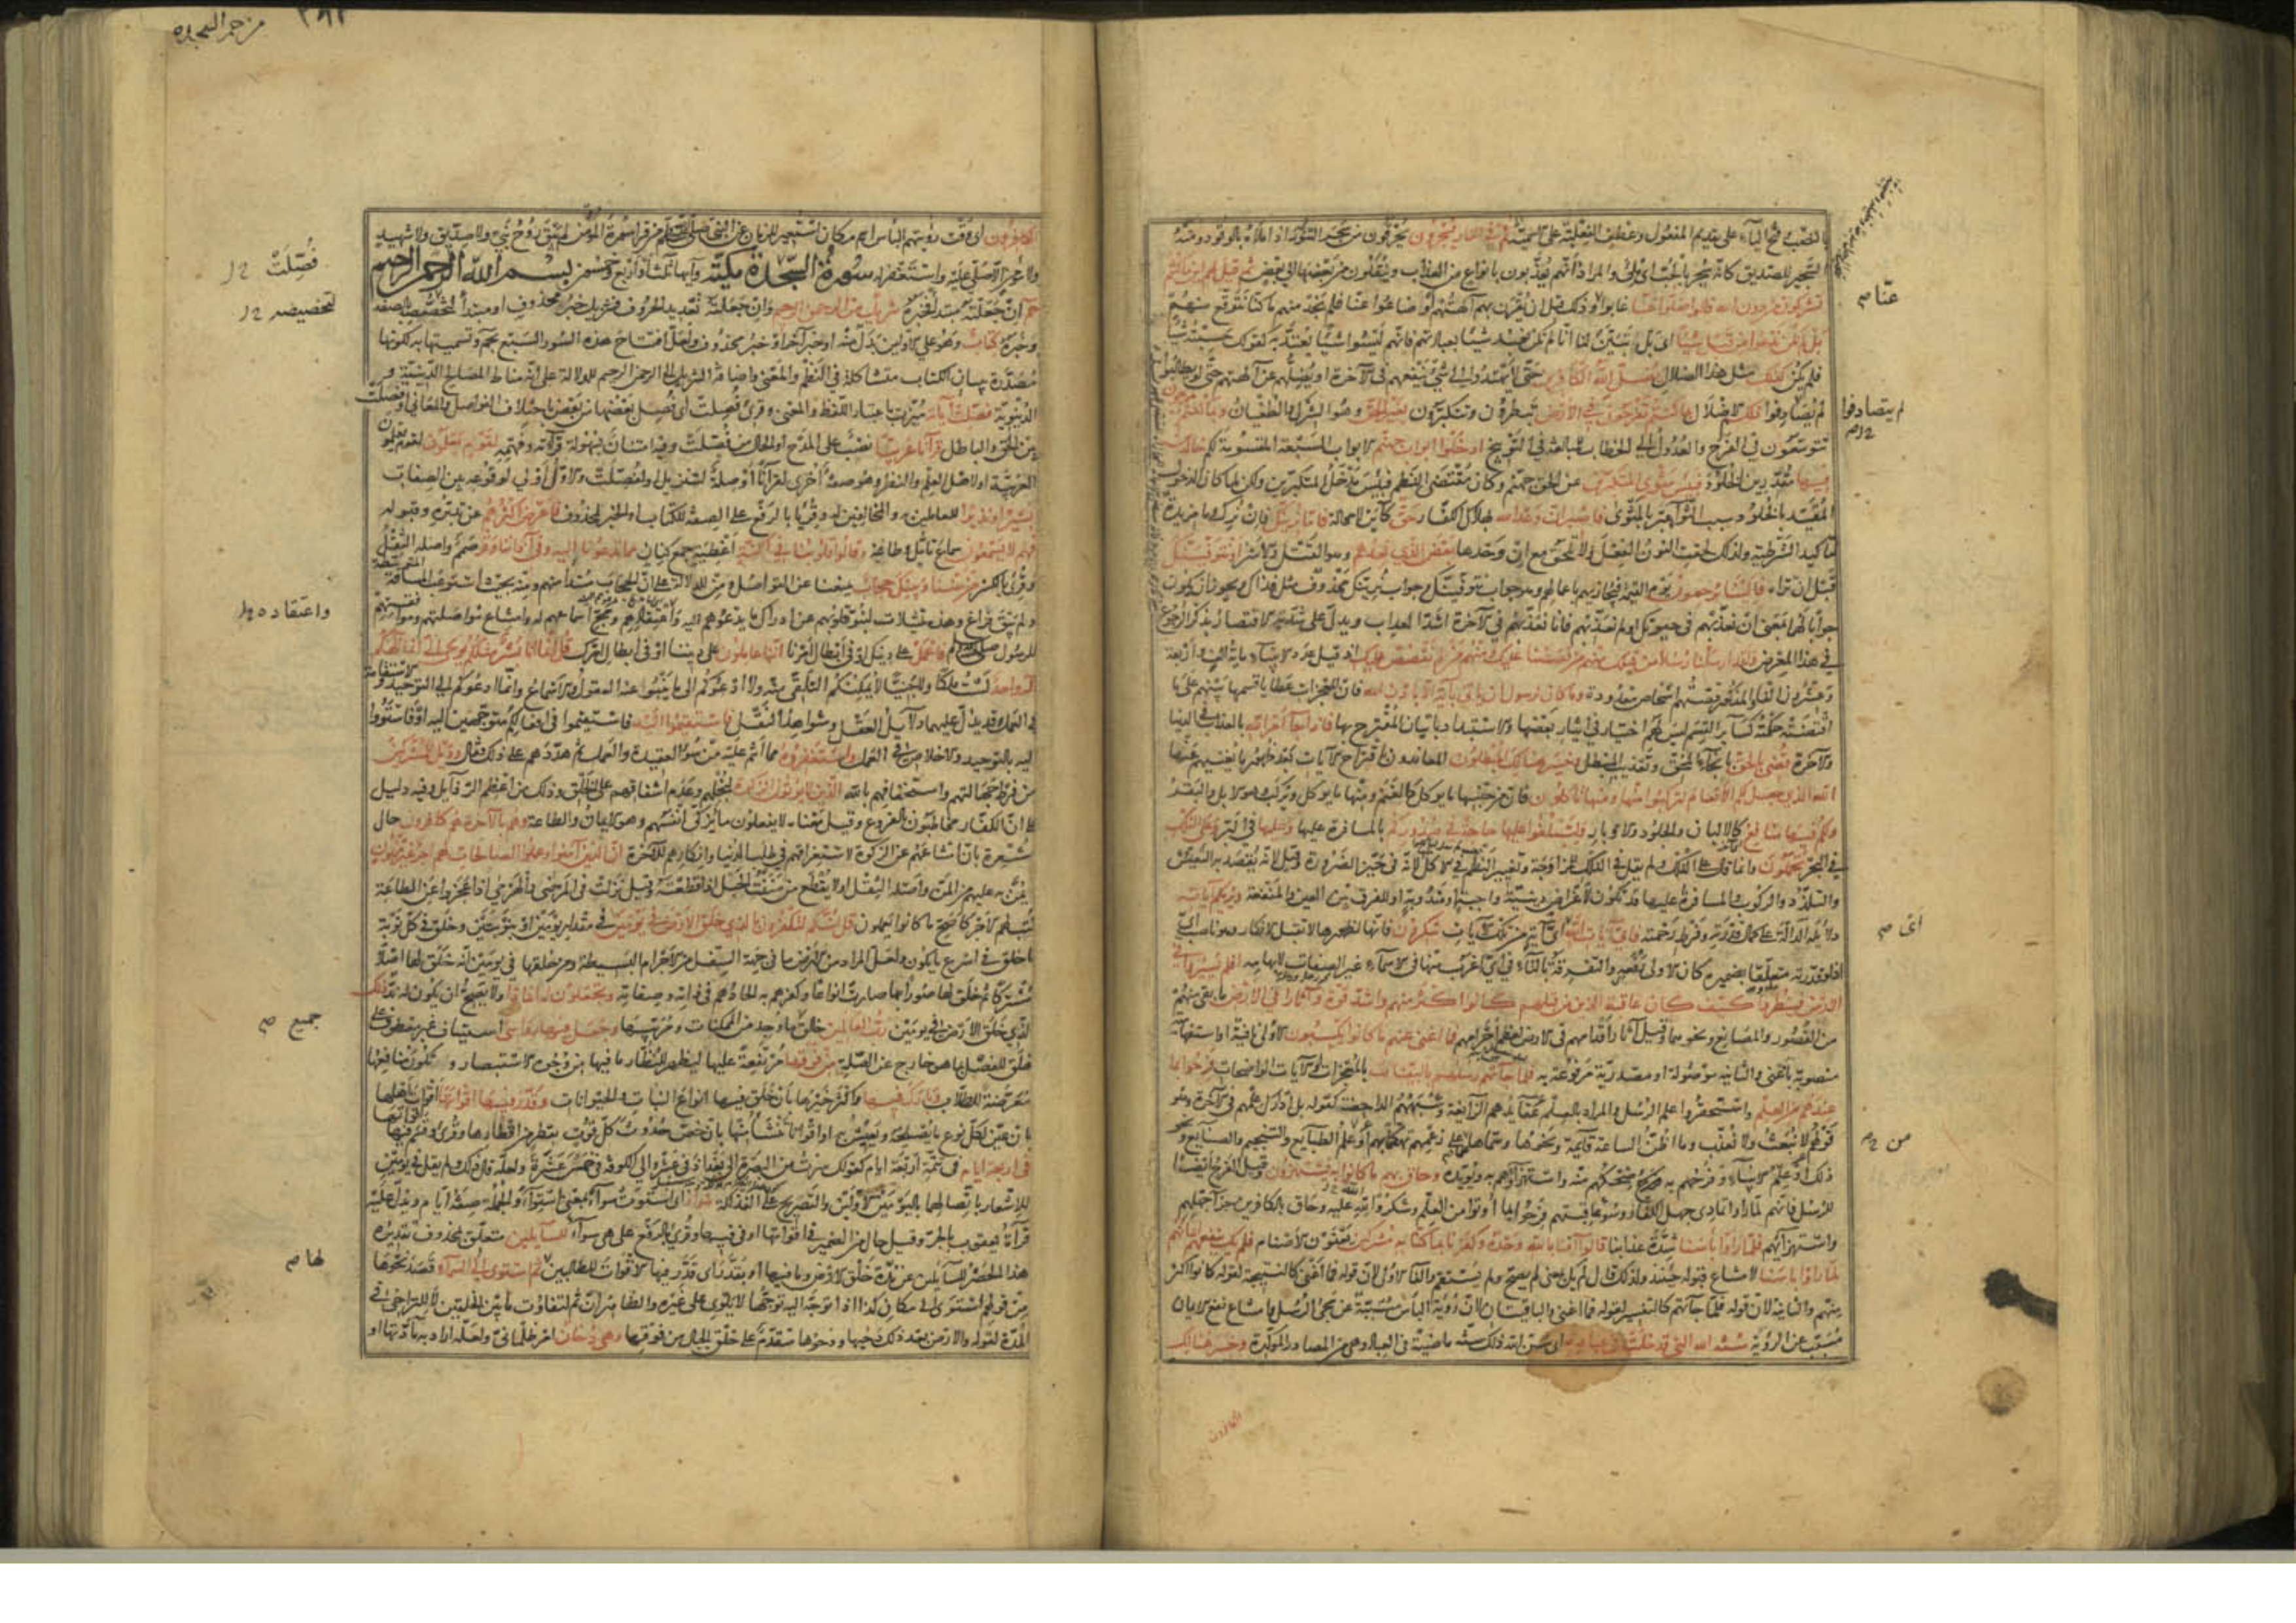 بالنصب وفتح الياء على تقديم المفعول وعطف الفعلية على الاسمية ثم في النار يسجرون يحرقون من سجر التنور اذا ملأه بالوقود ومنه
السجير للصديق كانه سجر بالحب اى ملئ والمراد انهم يعذبون بانواع من العذاب وينقلون من بعضها الى بعض ثم قيل لهم اين ما كنتم
تشركون من دون الله قالوا ضلوا عنا غابوا وذلك قبل ان يقرن بهم آلهتهم او ضاعوا عنا فلم نجد منهم ما كنا نتوقع منهم
بل لم نكن ندعوا من قبل شيئا اى بل تبين لنا انا لم نكن نعبد شيئا بعبادتهم فانهم ليسوا شيئا يعتد به كقولك حسبته شيئا
فلم يكن كذلك مثل هذا الضلال يضل الله الكافرين حتى لا يهتدوا الى شئ ينفعهم فى الآخرة او يضلهم عن آلهتهم حتى لو تطالبوا
لم يتصادفوا ذلكم الاضلال بما كنتم تفرحون في الارض تبطرون وتتكبرون بغير الحق وهو الشرك والطغيان وبما كنتم تمرحون
تتوسعون فى الفرح والعدول الى الخطاب للمبالغة فى التوبيخ ادخلوا ابواب جهنم الابواب السبعة المقسومة لكم خالدين
فيها مقدرين الخلود فبئس مثوى المتكبرين عن الحق جهنم وكان مقتضى النظم فبئس مدخل المتكبرين ولكن لما كان الدخول
المقيد بالخلود سبب الثواء عبر بالمثوى فاصبر ان وعد الله بهلاك الكفار حق كائن لا محالة فاما نرينك فان نرك وما مزيدة
لتأكيد الشرطية ولذلك لحقت النون الفعل ولا تلحق مع ان وحدها بعض الذي نعدهم وهو القتل والاسر او نتوفينك
قبل ان تراه فالينا يرجعون يوم القيمة فنجازيهم باعمالهم وهو جواب نتوفينك وجواب نرينك محذوف مثل فذاك ويجوز ان يكون
جوابا لهما بمعنى ان نعذبهم فى حيوتك او لم نعذبهم فانا نعذبهم فى الآخرة اشد العذاب ويدل على شدته الاقتصار بذكر الرجوع
في هذا المعرض ولقد ارسلنا رسلا من قبلك منهم من قصصنا عليك ومنهم من لم نقصص عليك اذ قيل عدد الانبياء مائة الف واربعة
وعشرون الفا والمذكور قصتهم اشخاص معدودة وما كان لرسول ان يأتي بآية الا باذن الله فان المعجزات عطايا قسمها بينهم على ما
اقتضته حكمته كسائر القسم ليس لهم اختيار في ايثار بعضها والاستبداد باتيان المقترح بها فاذا جاء امر الله بالعذاب في الدنيا
والآخرة قضي بالحق بانجاء المحق وتعذيب المبطل وخسر هنالك المبطلون المعاندون باقتراح الآيات بعد ظهور ما يغنيهم عنها
الله الذي جعل لكم الانعام لتركبوا منها ومنها تأكلون فان من جنسها ما يوكل كالغنم ومنها ما يوكل ويركب كالابل والبقر
ولكم فيها منافع كالالبان والجلود والاوبار ولتبلغوا عليها حاجة في صدوركم بالمسافرة عليها وعليها في البر وعلى الفلك
في البحر تحملون وانما قال على الفلك ولم يقل في الفلك للمزاوجة وتغيير النظم في الاكل لانه في حيز الضرورة وقيل لانه يقصد به التعيش
والتلذذ والركوب والمسافرة عليها قد تكون لاغراض دينية واجبة او مندوبة او للفرق بين العين والمنفعة ويريكم آياته
دلائله الدالة على كمال قدرته وفرط رحمته فاي آيات الله اى آية من تلك الآيات تنكرون فانها لظهورها لا تقبل الانكار وهو ناصب اى
اذ لو قدرته متعلقا بضميره كان الاولى رفعه والتفرقة بالتاء في اي اغرب منها في الاسماء غير الصفات لابهامه افلم يسيروا في
الارض فينظروا كيف كان عاقبة الذين من قبلهم كانوا اكثر منهم واشد قوة وآثارا في الارض ما بقي منهم
من القصور والمصانع ونحوهما وقيل آثار اقدامهم في الارض لعظم اجرامهم فما اغنى عنهم ما كانوا يكسبون الاولى نافية او استفهامية
منصوبة باغنى والثانية موصولة او مصدرية مرفوعة به فلما جاءتهم رسلهم بالبينات بالمعجزات والآيات الواضحات فرحوا بما
عندهم من العلم واستحقروا علم الرسل والمراد بالعلم عقايدهم الزايغة وشبههم الداحضة كقوله بل ادارك علمهم في الآخرة وهو
قولهم لا نبعث ولا نعذب وما اظن الساعة قايمة ونحوها وسماها علما على زعمهم تهكما بهم او علم الطبايع والتنجيم والصنايع ونحو
ذلك او علم الانبياء وفرحهم به ضحكهم منه واستهزاؤهم به ويؤيده وحاق بهم ما كانوا به يستهزئون وقيل الفرح ايضا
للرسل فانهم لما راوا تمادي جهل الكفار وسوء عاقبتهم فرحوا بما اوتوا من العلم وشكروا الله عليه وحاق بالكافرين جزاء جهلهم
واستهزائهم فلما راوا بأسنا شدة عذابنا قالوا آمنا بالله وحده وكفرنا بما كنا به مشركين يعنون الاصنام فلم يك ينفعهم ايمانهم
لما راوا بأسنا لامتناع قبوله حينئذ ولذلك قال لم يك بمعنى لم يصح ولم يستقم والفاء الاولى لان قوله فما اغنى كالنتيجة لقوله كانوا اكثر
منهم والثانية لان قوله فلما جاءتهم كالتفسير لقوله فما اغنى والباقيتان لان رؤية البأس مسببة عن مجئ الرسل وامتناع نفع الايمان
مسبب عن الرؤية سنة الله التي قد خلت في عباده اى سن الله ذلك سنة ماضية في العباد وهي من المصادر المؤكدة وخسر هنالك
الكافرون
عنا ص
لم يتصادفوا
اى ص
من ص
من حم السجدة
الكافرون اى وقت رؤيتهم البأس اسم مكان استعير للزمان عن النبي صلى الله عليه وسلم من قرأ سورة المؤمن لم يبق روح نبي ولا صديق ولا شهيد
ولا مؤمن الا صلى عليه واستغفر له سورة السجدة مكية وآيها ثلث او اربع وخمسون بسم الله الرحمن الرحيم
حم ان جعلته مبتدأ فخبره تنزيل من الرحمن الرحيم وان جعلته تعديدا للحروف فتنزيل خبر محذوف او مبتدأ لتخصصه بالصفة
وخبره كتاب وهو على الاولين بدل منه او خبر آخر او خبر محذوف ولعل افتتاح هذه السور السبع بحم وتسميتها به لكونها
مصدرة ببيان الكتاب متشاكلة في النظم والمعنى واضافة التنزيل الى الرحمن الرحيم للدلالة على انه مناط المصالح الدينية و
الدنيوية فصلت آياته ميزت باعتبار اللفظ والمعنى وقرئ فصلت اى فصل بعضها من بعض باختلاف الفواصل والمعاني او فصلت
بين الحق والباطل قرآنا عربيا نصب على المدح او الحال من فصلت وفيه امتنان بسهولة قرأته وفهمه لقوم يعلمون لقوم يعلمون
العربية او لاهل العلم والنظر وهو صفة اخرى لقرآنا او صلة لتنزيل او لفصلت والاول اولى لوقوعه بين الصفات
بشيرا ونذيرا للعاملين به والمخالفين له وقرئا بالرفع على الصفة للكتاب او الخبر لمحذوف فاعرض اكثرهم عن تدبره وقبوله
فهم لا يسمعون سماع تأمل وطاعة وقالوا قلوبنا في اكنة اغطية جمع كنان مما تدعونا اليه وفي آذاننا وقر صمم واصله الثقل
وقرئ بالكسر ومن بيننا وبينك حجاب يمنعنا عن التواصل ومن للدلالة على ان الحجاب مبتدأ منهم ومنه بحيث استوعب المسافة المتوسطة
ولم يبق فراغ وهذه تمثيلات لنبو قلوبهم عن ادراك ما يدعوهم اليه واعتقادهم ومج اسماعهم له وامتناع مواصلتهم وموافقتهم
للرسول صلى الله عليه وسلم فاعمل على دينك او في ابطال امرنا اننا عاملون على ديننا او في ابطال امرك قل انما انا بشر مثلكم يوحى الي انما الهكم
اله واحد لست ملكا ولا جنيا لا يمكنكم التلقي منه ولا ادعوكم الى ما ينبو عنه العقول والاسماع وانما ادعوكم الى التوحيد والاستقامة
في العمل وقد يدل عليهما دلائل العقل وشواهد النقل فاستقيموا اليه فاستقيموا في افعالكم متوجهين اليه او فاستووا
اليه بالتوحيد والاخلاص في العمل واستغفروه مما انتم عليه من سوء العقيدة والعمل ثم هددهم على ذلك فقال وويل للمشركين
من فرط جهالتهم واستخفافهم بالله الذين لا يؤتون الزكاة لبخلهم وعدم اشفاقهم على الخلق وذلك من اعظم الرذائل وفيه دليل
على ان الكفار مخاطبون بالفروع وقيل معناه لا يفعلون ما يزكي انفسهم وهو الايمان والطاعة وهم بالآخرة هم كافرون حال
مشعرة بان امتناعهم عن الزكوة لاستغراقهم في طلب الدنيا وانكارهم للآخرة ان الذين آمنوا وعملوا الصالحات لهم اجر غير ممنون
لا يمن به عليهم من المن واصله الثقل او لا يقطع من مننت الحبل اذا قطعته وقيل نزلت في المرضى والهرمى اذا عجزوا عن الطاعة
كتب لهم الاجر كاصح ما كانوا يعملون قل ائنكم لتكفرون بالذي خلق الارض في يومين في مقدار يومين او بنوبتين وخلق في كل نوبة
ما خلق في اسرع ما يكون ولعل المراد من الارض ما في جهة السفل من الاجرام البسيطة ومن خلقها في يومين انه خلق لها اصلا
مشتركا ثم خلق لها صورا بها صارت انواعا وكفرهم به الحادهم في ذاته وصفاته وتجعلون له اندادا ولا يصح ان يكون له ند ذلك
الذي خلق الارض في يومين رب العالمين خالق ما وجد من الممكنات ومربيها وجعل فيها رواسي استيناف غير معطوف على
خلق للفصل بما هو خارج عن الصلة من فوقها مرتفعة عليها ليظهر للنظار ما فيها من وجوه الاستبصار وتكون منافعها
معرضة للطلاب وبارك فيها واكثر خيرها بان خلق فيها انواع النبات والحيوانات وقدر فيها اقواتها اقوات اهلها
بان عين لكل نوع ما يصلحه ويعيش به او اقواتا تنشأ منها بان خص حدوث كل قوت بقطر من اقطارها وقرئ وقسم فيها اقواتها
في اربعة ايام في تتمة اربعة ايام كقولك سرت من البصرة الى بغداد في عشر والى الكوفة في خمس عشرة ولعله قال ذلك ولم يقل في يومين
للاشعار باتصالهما باليومين الاولين والتصريح على الفذلكة سواء اى استوت سواء بمعنى استواء والجملة صفة ايام ويدل عليه
قرآءة يعقوب بالجر وقيل حال من الضمير في اقواتها او في فيها وقرئ بالرفع على هي سواء للسائلين متعلق بمحذوف تقديره
هذا الحصر للسائلين عن مدة خلق الارض وما فيها او بقدر اى قدر فيها الاقوات للطالبين ثم استوى الى السماء قصد نحوها
من قولهم استوى الى مكان كذا اذا توجه اليه توجها لا يلوي على غيره والظاهر ان ثم لتفاوت ما بين الخلقين لا للتراخي في
المدة لقوله والارض بعد ذلك دحيها ودحوها متقدم على خلق الجبال من فوقها وهي دخان امر ظلماني ولعله اراد به مادتها او
فصلت
لتخصيصه
واعتقاده
جميع ص
لها ص